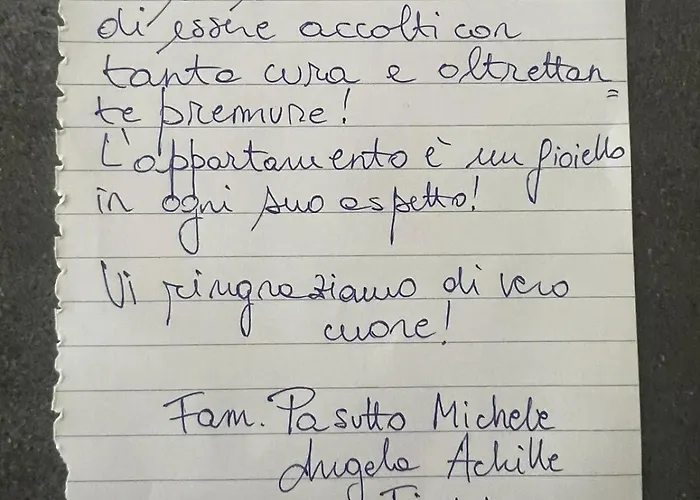 di essere accolti con
tanta cura e oltrettan=
te premure!
L'appartamento è un gioiello
in ogni suo aspetto!
Vi ringraziamo di vero
cuore!
Fam. Pasutto Michele
Angela Achille